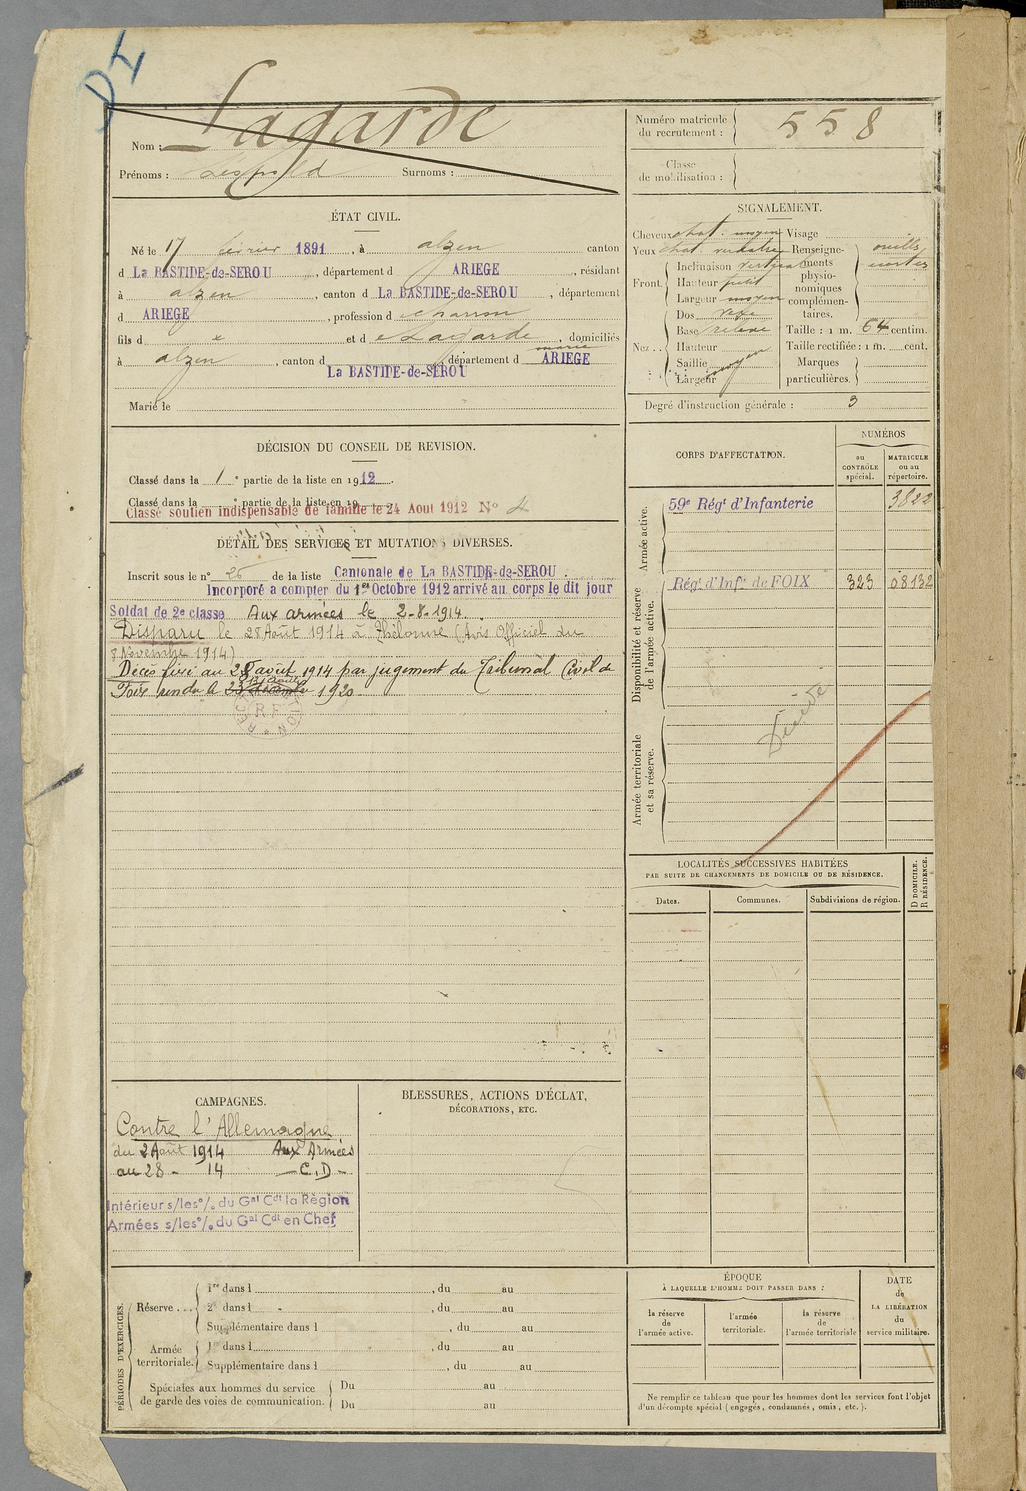 D4
Nom : Lagarde
Prénoms : Léopold Surnoms :
Numéro matricule du recrutement : 558
Classe de mobilisation :
ÉTAT CIVIL.
Né le 17 février 1891, à alzen canton
d La BASTIDE-de-SEROU, département d ARIEGE, résidant
à alzen, canton d La BASTIDE-de-SEROU, département
d ARIEGE, profession d charron
fils d e et d e Lagarde marie, domiciliés
à alzen, canton d La BASTIDE-de-SEROU département d ARIEGE
Marié le
SIGNALEMENT.
Cheveux chat. moyen
Yeux chat. verdatre
Front. Inclinaison vertical
Hauteur petit
Largeur moyen
Nez .. Dos
Base relevé
Hauteur
Saillie
Largeur moyen
Visage
Renseignements physionomiques complémentaires.
Taille : 1 m. 64 centim.
Taille rectifiée : 1 m. cent.
Marques particulières.
Degré d'instruction générale : 3
DÉCISION DU CONSEIL DE REVISION.
Classé dans la 1e partie de la liste en 1912.
Classé dans la e partie de la liste en 19
Classé soutien indispensable de famille le 24 Aout 1912 N° 4
DÉTAIL DES SERVICES ET MUTATIONS DIVERSES.
Inscrit sous le n° 26 de la liste Cantonale de La BASTIDE-de-SEROU.
Incorporé a compter du 1er Octobre 1912 arrivé au corps le dit jour
Soldat de 2e classe Aux armées le 2-8-1914.
Disparu le 28 Août 1914 à Thélonne (Avis Officiel du
8 Novembre 1914)
Décès fixé au 28 août 1914 par jugement du Tribunal Civil de
Foix rendu le 1920
RF
CORPS D'AFFECTATION.
NUMÉROS
au CONTRÔLE spécial.
MATRICULE ou au répertoire.
Armée active.
59e Régt d'Infanterie 3822
Disponibilité et réserve de l'armée active.
Régt d'Infie de FOIX 323 08132
Armée territoriale et sa réserve.
Décédé
LOCALITÉS SUCCESSIVES HABITÉES
PAR SUITE DE CHANGEMENTS DE DOMICILE OU DE RÉSIDENCE.
Dates. Communes. Subdivisions de région. D DOMICILE. R RÉSIDENCE.
CAMPAGNES.
Contre l'Allemagne
du 2 Août 1914 Aux Armées
au 28 - 14 - C.D -
Intérieur s/les °/. du Gal Cdt la Règion
Armées s/les °/. du Gal Cdt en Chef
BLESSURES, ACTIONS D'ÉCLAT,
DÉCORATIONS, ETC.
PÉRIODES D'EXERCICES.
Réserve ... 1re dans l , du au
2e dans l , du au
Supplémentaire dans l , du au
Armée territoriale. 1re dans l , du au
Supplémentaire dans l , du au
Spéciales aux hommes du service de garde des voies de communication. Du au
Du au
ÉPOQUE
À LAQUELLE L'HOMME DOIT PASSER DANS :
la réserve de l'armée active.
l'armée territoriale.
la réserve de l'armée territoriale
DATE de LA LIBÉRATION du service militaire.
Ne remplir ce tableau que pour les hommes dont les services font l'objet
d'un décompte spécial (engagés, condamnés, omis, etc.).